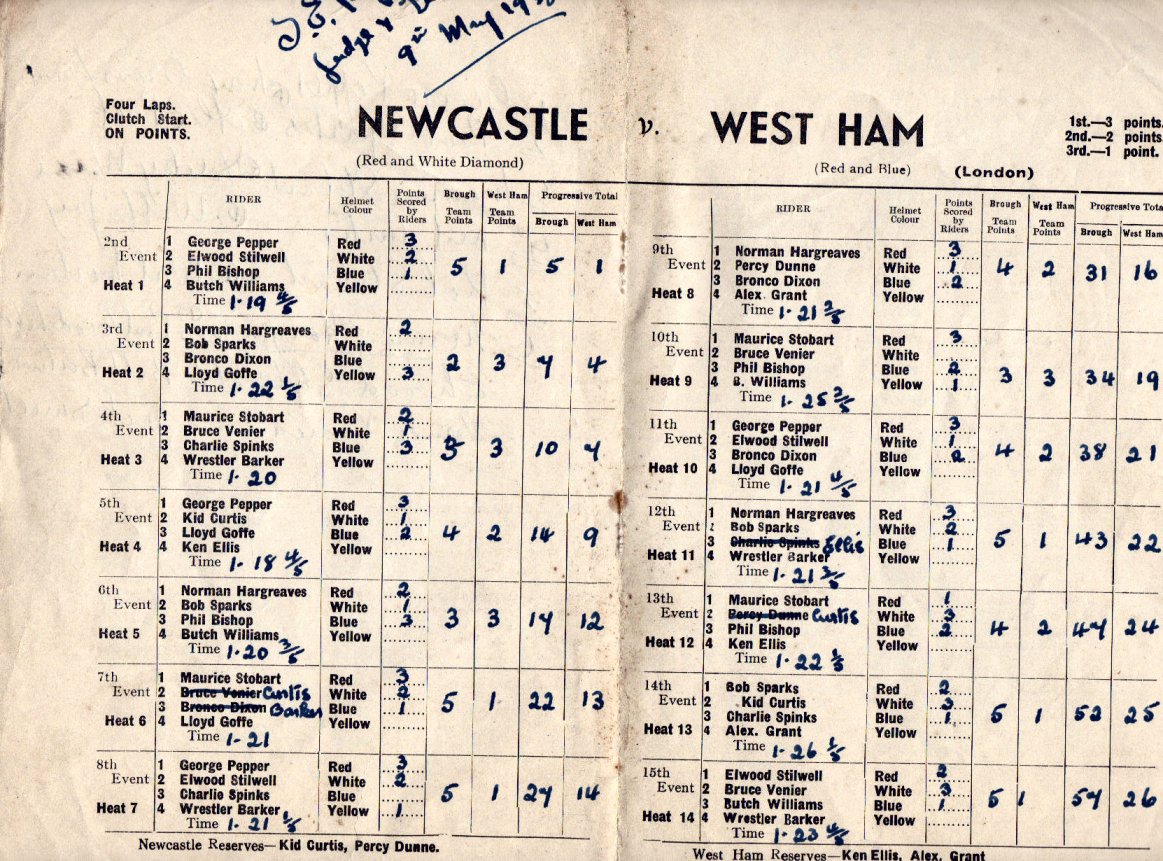 Judge &
9th May
Four Laps.
Clutch Start.
ON POINTS.
NEWCASTLE v. WEST HAM
(Red and White Diamond)
(Red and Blue) (London)
1st.—3 points.
2nd.—2 points.
3rd.—1 point.
RIDER Helmet Colour Points Scored by Riders Brough Team Points West Ham Team Points Progressive Total Brough West Ham
2nd 1 George Pepper Red 3
Event 2 Elwood Stilwell White 2
3 Phil Bishop Blue 1 5 1 5 1
Heat 1 4 Butch Williams Yellow
Time 1-19 4/5
3rd 1 Norman Hargreaves Red 2
Event 2 Bob Sparks White
3 Bronco Dixon Blue 2 3 7 4
Heat 2 4 Lloyd Goffe Yellow 3
Time 1-22 1/5
4th 1 Maurice Stobart Red 2
Event 2 Bruce Venier White 1
3 Charlie Spinks Blue 3 3 3 10 7
Heat 3 4 Wrestler Barker Yellow
Time 1-20
5th 1 George Pepper Red 3
Event 2 Kid Curtis White 1
3 Lloyd Goffe Blue 2 4 2 14 9
Heat 4 4 Ken Ellis Yellow
Time 1-18 4/5
6th 1 Norman Hargreaves Red 2
Event 2 Bob Sparks White 1
3 Phil Bishop Blue 3 3 3 17 12
Heat 5 4 Butch Williams Yellow
Time 1-20 3/5
7th 1 Maurice Stobart Red 3
Event 2 Bruce Venier Curtis White 2
3 Bronco Dixon Barker Blue 1 5 1 22 13
Heat 6 4 Lloyd Goffe Yellow
Time 1-21
8th 1 George Pepper Red 3
Event 2 Elwood Stilwell White 2
3 Charlie Spinks Blue 5 1 27 14
Heat 7 4 Wrestler Barker Yellow 1
Time 1-21 1/5
Newcastle Reserves—Kid Curtis, Percy Dunne.
RIDER Helmet Colour Points Scored by Riders Brough Team Points West Ham Team Points Progressive Total Brough West Ham
9th 1 Norman Hargreaves Red 3
Event 2 Percy Dunne White 1
3 Bronco Dixon Blue 2 4 2 31 16
Heat 8 4 Alex. Grant Yellow
Time 1-21 2/5
10th 1 Maurice Stobart Red 3
Event 2 Bruce Venier White
3 Phil Bishop Blue 2 3 3 34 19
Heat 9 4 B. Williams Yellow 1
Time 1-25 2/5
11th 1 George Pepper Red 3
Event 2 Elwood Stilwell White 1
3 Bronco Dixon Blue 2 4 2 38 21
Heat 10 4 Lloyd Goffe Yellow
Time 1-21 4/5
12th 1 Norman Hargreaves Red 3
Event 2 Bob Sparks White 2
3 Charlie Spinks Ellis Blue 1 5 1 43 22
Heat 11 4 Wrestler Barker Yellow
Time 1-21 3/5
13th 1 Maurice Stobart Red 1
Event 2 Percy Dunne Curtis White 3
3 Phil Bishop Blue 2 4 2 47 24
Heat 12 4 Ken Ellis Yellow
Time 1-22 1/5
14th 1 Bob Sparks Red 2
Event 2 Kid Curtis White 3
3 Charlie Spinks Blue 1 5 1 52 25
Heat 13 4 Alex. Grant Yellow
Time 1-26 1/5
15th 1 Elwood Stilwell Red 2
Event 2 Bruce Venier White 3
3 Butch Williams Blue 1 5 1 57 26
Heat 14 4 Wrestler Barker Yellow
Time 1-23 4/5
West Ham Reserves—Ken Ellis, Alex. Grant